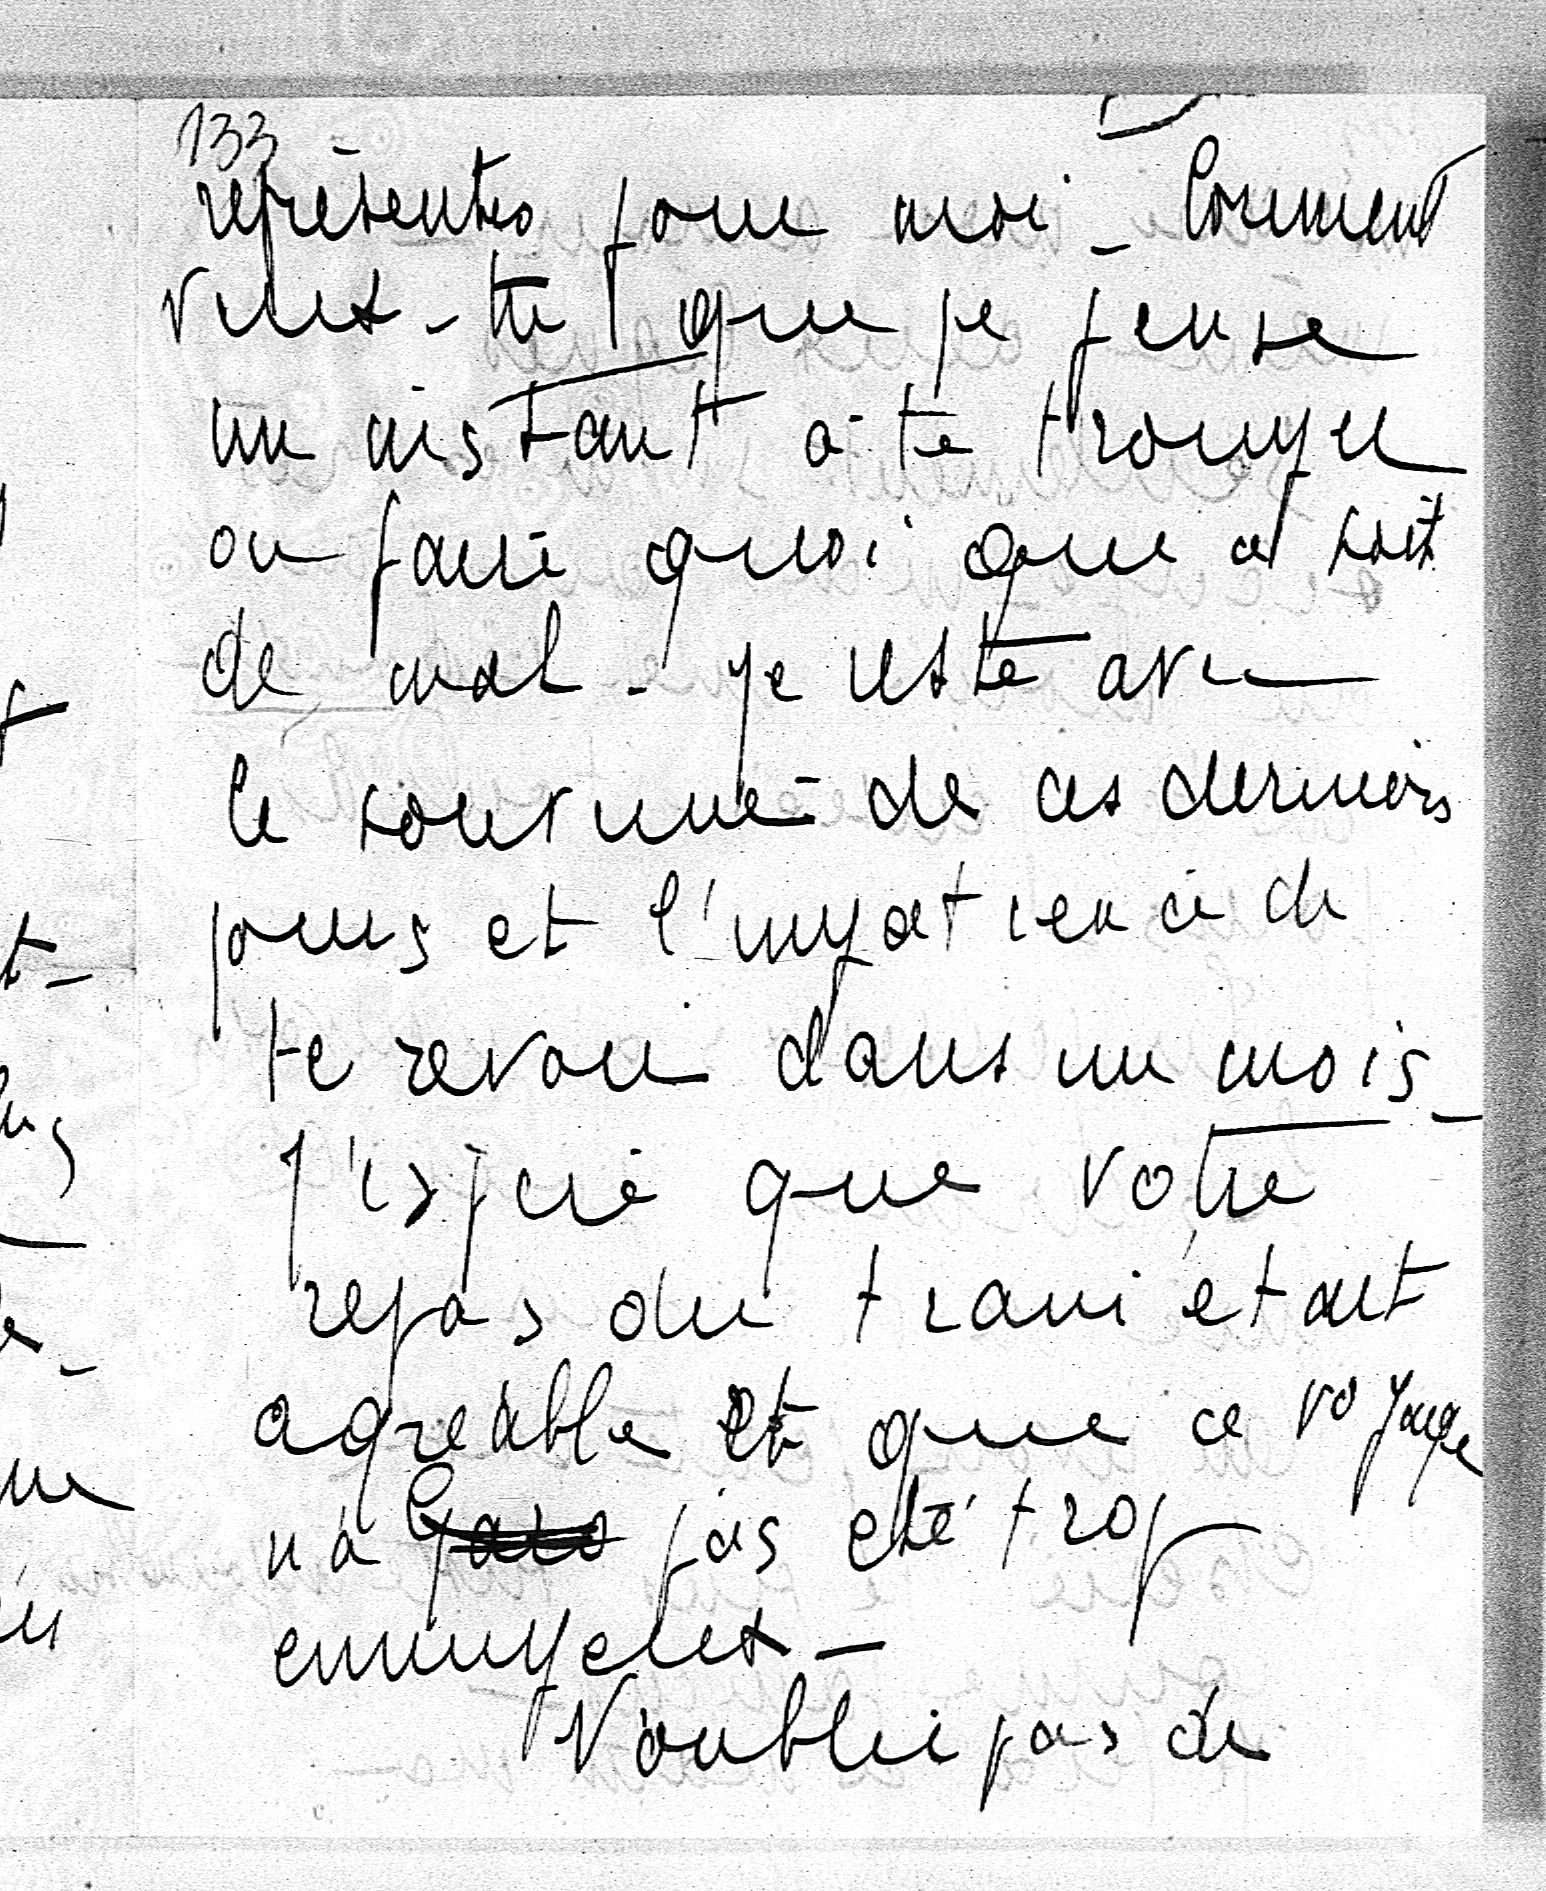 133
représentes pour moi - Comment
veux-tu que je pense
un instant à te tromper
ou faire quoi que ce soit
de mal - je reste avec
le souvenir de ces derniers
jours et l'impatience de
te revoir dans un mois -
j'espère que votre
repas du train était
agréable et que ce voyage
n'a pas été trop
ennuyeux -
N'oublie pas de